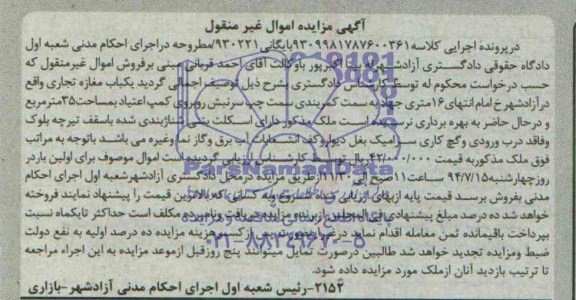 آگهی مزایده اموال غیر منقول
در پرونده اجرایی کلاسه ۹۳۰۹۹۸۱۷۸۷۶۰۰۳۶۱ بایگانی ۹۳۰۲۲۱/ مطروحه در اجرای احکام مدنی شعبه اول
دادگاه حقوقی دادگستری آزادشهر له اکبرپور با وکالت آقای احمد قربانی مبنی بر فروش اموال غیر منقول که
حسب درخواست محکوم له توسط کارشناس دادگستری بشرح ذیل توصیف اجمالی گردید یکباب مغازه تجاری واقع
در آزادشهر خ امام انتهای ۱۶ متری جهاد به سمت کمربندی سمت چپ سرنبش روبروی کمپ اعتیاد بمساحت ۳۵ مترمربع
و در حال حاضر به بهره برداری نرسیده است ملک مذکور دارای اسکلت بنایی شناژبندی شده باسقف تیرچه بلوک
وفاقد درب ورودی و گچ کاری سرامیک بغل دیوار و کف انشعابات آب برق و گاز نما وغیره می باشد باتوجه به مراتب
فوق ملک مذکور به قیمت ۴۲/۰۰۰/۰۰۰ ریال توسط کارشناس ارزیابی گردیده است اموال موصوف برای اولین بار در
روز چهارشنبه ۹۴/۷/۱۵ ساعت ۱۱ صبح الی از طریق مزایده در محل دادگستری آزادشهر شعبه اول اجرای احکام
مدنی بفروش برسد قیمت پایه از بهای ارزیابی شده شروع و به کسانی که بالاترین قیمت را پیشنهاد نمایند فروخته
خواهد شد ده درصد مبلغ پیشنهادی فی المجلس از برنده مزایده دریافت ونامبرده مکلف است حداکثر تا یکماه نسبت
بپرداخت باقیمانده ثمن معامله اقدام نماید در غیر اینصورت پس از کسر هزینه مزایده ده درصد اولیه به نفع دولت
ضبط ومزایده تجدید خواهد شد طالبین درصورت تمایل میتوانند پنج روز قبل از موعد مزایده به این اجراء مراجعه
تا ترتیب بازدید آنان از ملک مورد مزایده داده شود.
۲۱۵۴-رئیس شعبه اول اجرای احکام مدنی آزادشهر-بازاری
ParsNamadData
۰۲۱-۸۸۳۴۹۶۷۰-۵